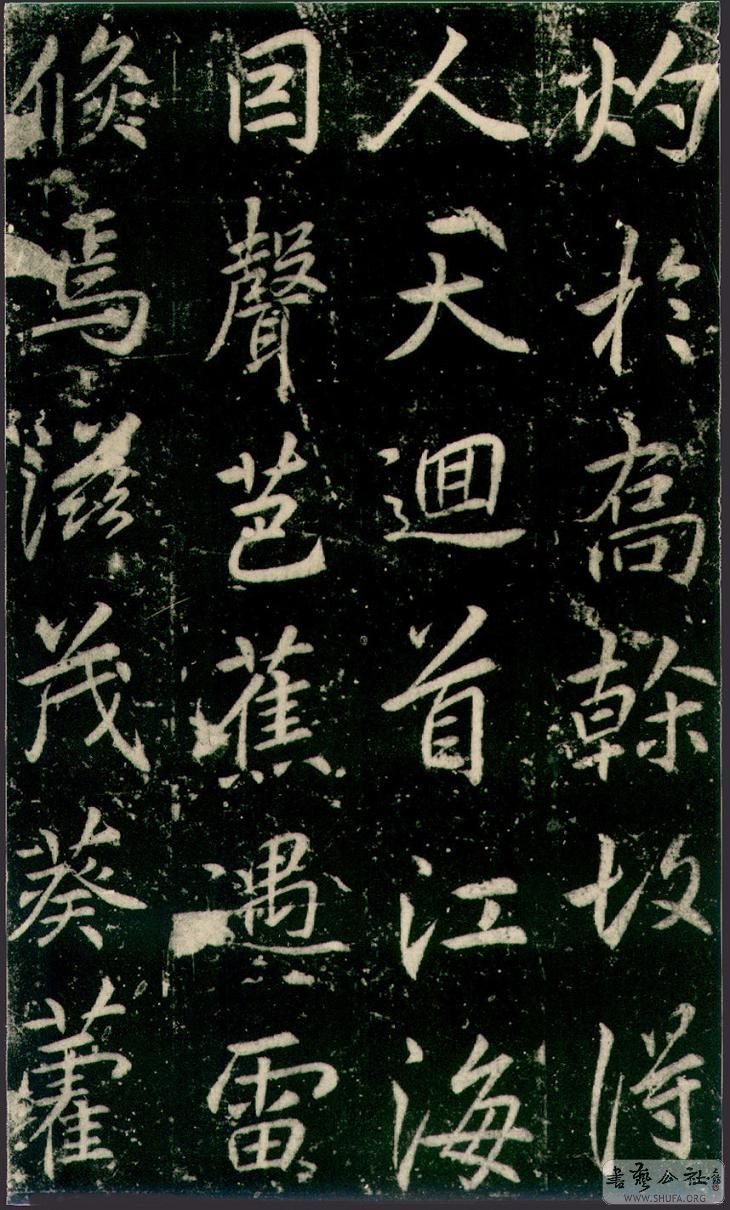 灼於喬榦故得
人天迴首江海
因聲芭蕉遇雷
倐焉滋茂葵藿
書藝公社
WWW.SHUFA.ORG